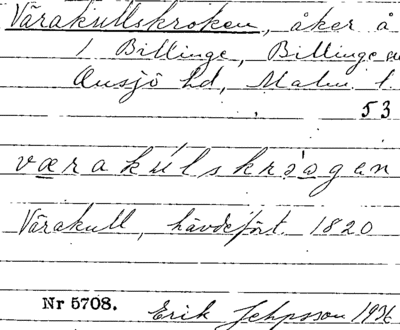 Vårakullskroken, åker å
1 Billinge, Billinge
Onsjö hd, Malm. l.
53
værakúlskrògan
Vårakull, hävdefört. 1820
Nr 5708.
Erik Jeppsson 1936